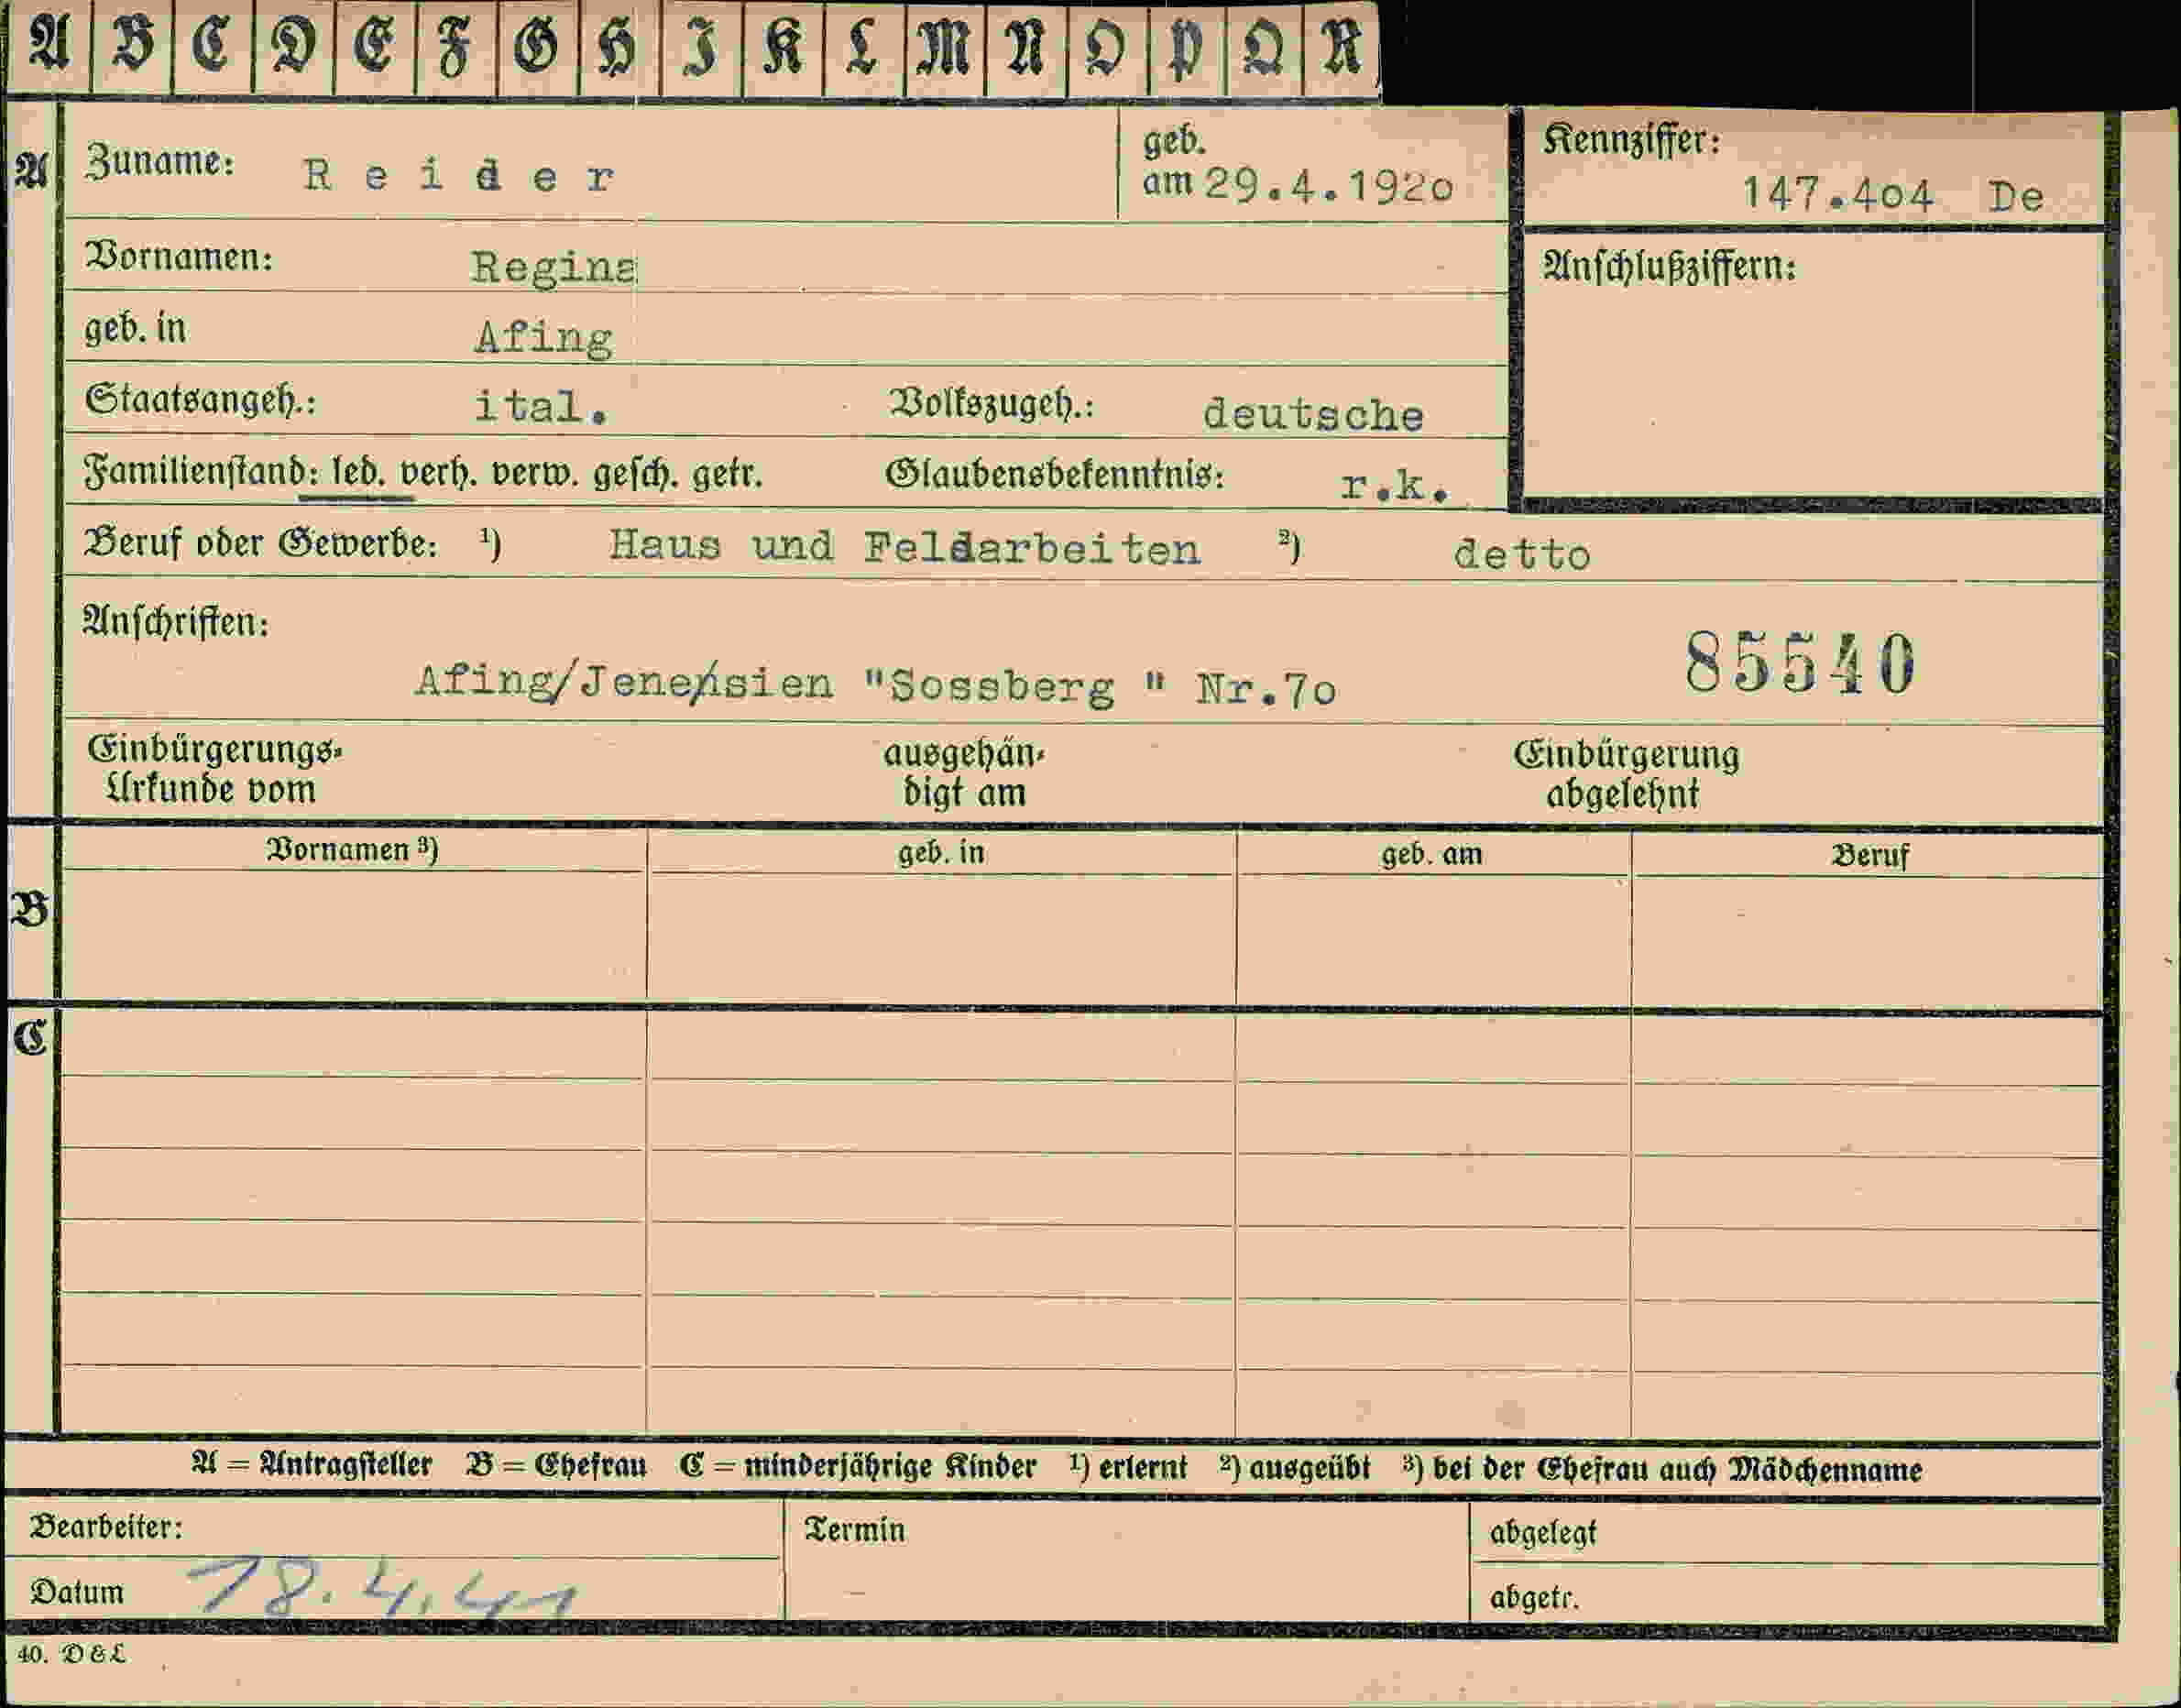 A B C D E F G H I K L M N O P Q R
A Zuname: Reider geb. am 29.4.1920 Kennziffer: 147.404 De
Vornamen: Regina Anschlußziffern:
geb. in Afing
Staatsangeh.: ital. Volkszugeh.: deutsche
Familienstand: led. verh. verw. gesch. getr. Glaubensbekenntnis: r.k.
Beruf oder Gewerbe: ¹) Haus und Feldarbeiten ²) detto
Anschriften:
85540
Afing/Jenesien "Sossberg " Nr.70
Einbürgerungs- ausgehän- Einbürgerung
Urkunde vom digt am abgelehnt
Vornamen ³) geb. in geb. am Beruf
B
C
A = Antragsteller B = Ehefrau C = minderjährige Kinder ¹) erlernt ²) ausgeübt ³) bei der Ehefrau auch Mädchenname
Bearbeiter: Termin abgelegt
Datum 18.4.41 abgetr.
40. D & L